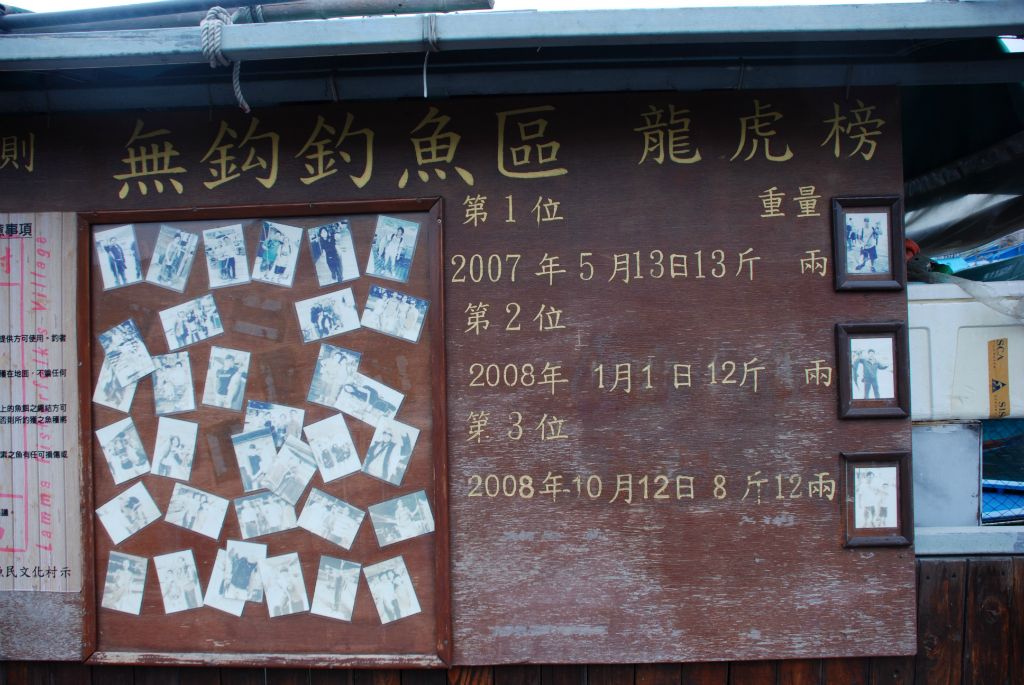 則
無鈎釣魚區 龍虎榜
第1位 重量
2007年5月13日13斤 兩
第2位
2008年 1月1日12斤 兩
第3位
2008年10月12日 8斤12兩
意事項
提供方可使用，釣者
種在地面，不論任何
上的魚餌之繩結方可
否則所釣獲之魚種將
素之魚有任可損傷或
漁民文化村示
Lamma Fisherfolk's Village
SCA